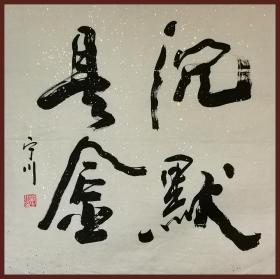 沉默
是金
宁川